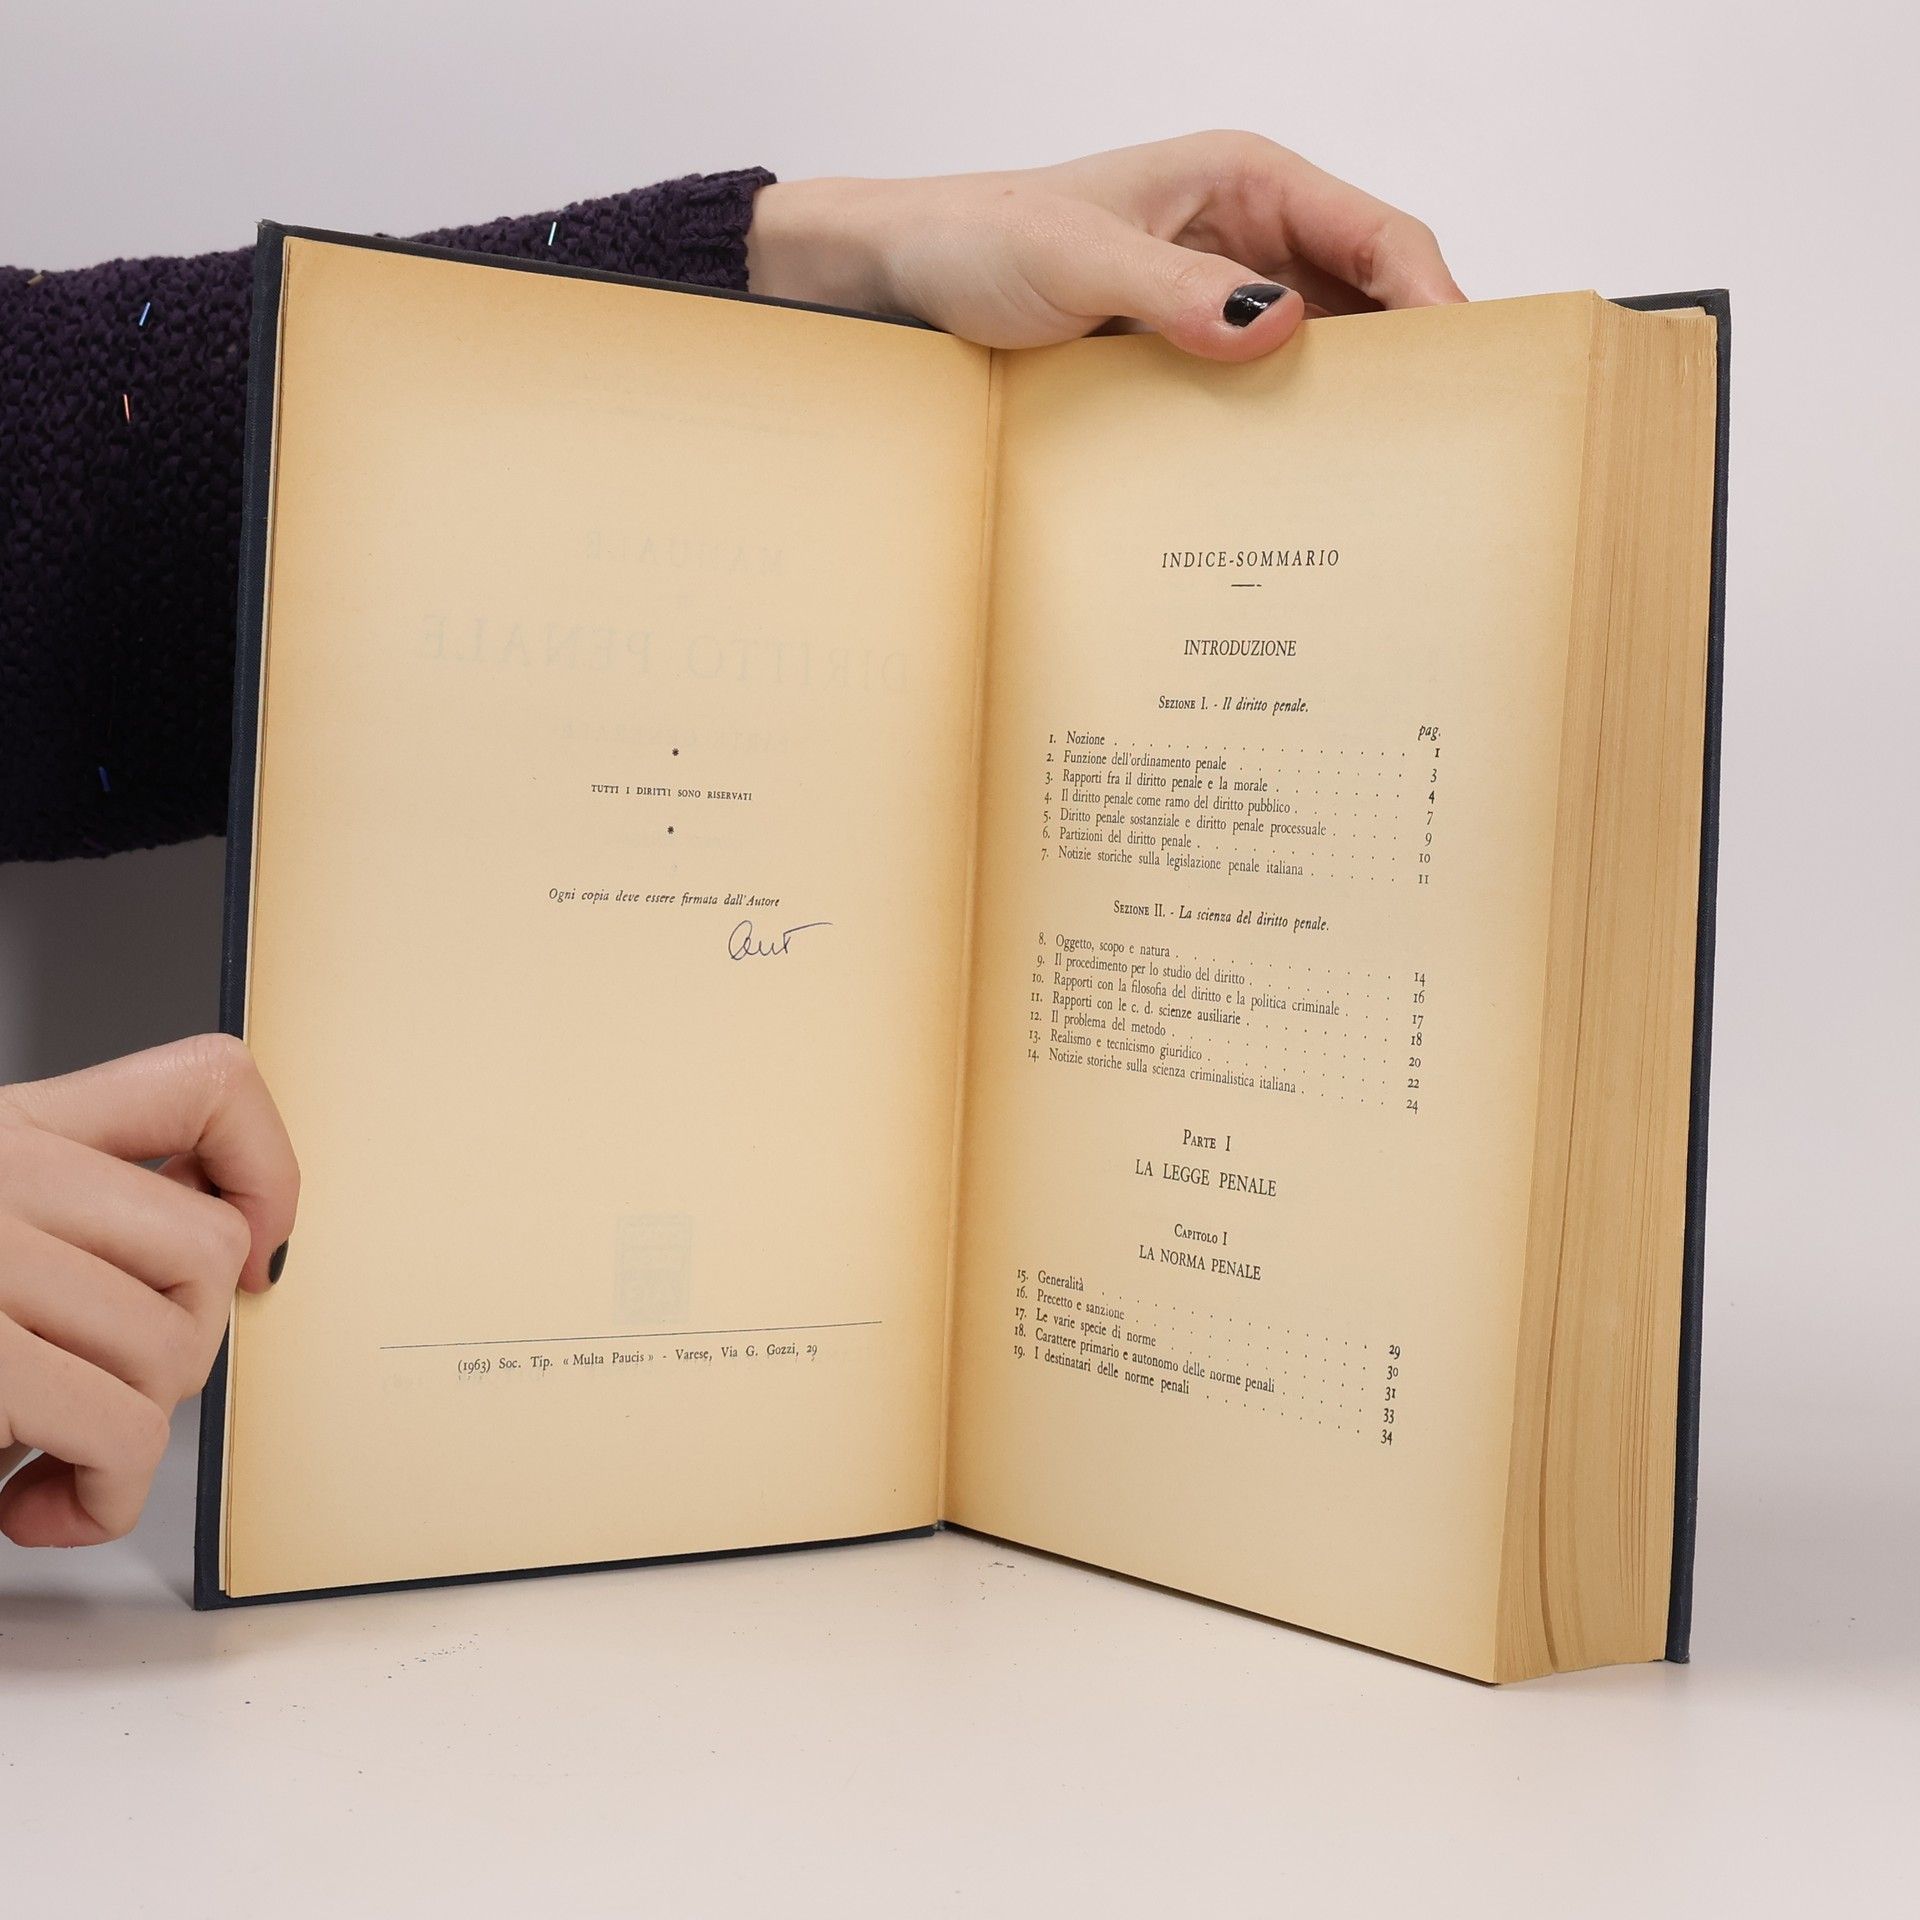 *
TUTTI I DIRITTI SONO RISERVATI
*
Ogni copia deve essere firmata dall'Autore
(1963) Soc. Tip. « Multa Paucis » - Varese, Via G. Gozzi, 29
INDICE-SOMMARIO
INTRODUZIONE
Sezione I. - Il diritto penale.
pag.
1. Nozione . . . . . . . . . . . . . . . . 1
2. Funzione dell'ordinamento penale . . . . . . . . . 3
3. Rapporti fra il diritto penale e la morale . . . . . . . 4
4. Il diritto penale come ramo del diritto pubblico . . . . . . 7
5. Diritto penale sostanziale e diritto penale processuale . . . . 9
6. Partizioni del diritto penale . . . . . . . . . . . 10
7. Notizie storiche sulla legislazione penale italiana . . . . . 11
Sezione II. - La scienza del diritto penale.
8. Oggetto, scopo e natura . . . . . . . . . . . 14
9. Il procedimento per lo studio del diritto . . . . . . . . 16
10. Rapporti con la filosofia del diritto e la politica criminale . . . 17
11. Rapporti con le c. d. scienze ausiliarie . . . . . . . . 18
12. Il problema del metodo . . . . . . . . . . . 20
13. Realismo e tecnicismo giuridico . . . . . . . . . 22
14. Notizie storiche sulla scienza criminalistica italiana . . . . . 24
Parte I
LA LEGGE PENALE
Capitolo I
LA NORMA PENALE
15. Generalità . . . . . . . . . . . . . . 29
16. Precetto e sanzione . . . . . . . . . . . . 30
17. Le varie specie di norme . . . . . . . . . . . 31
18. Carattere primario e autonomo delle norme penali . . . . . 33
19. I destinatari delle norme penali . . . . . . . . . 34